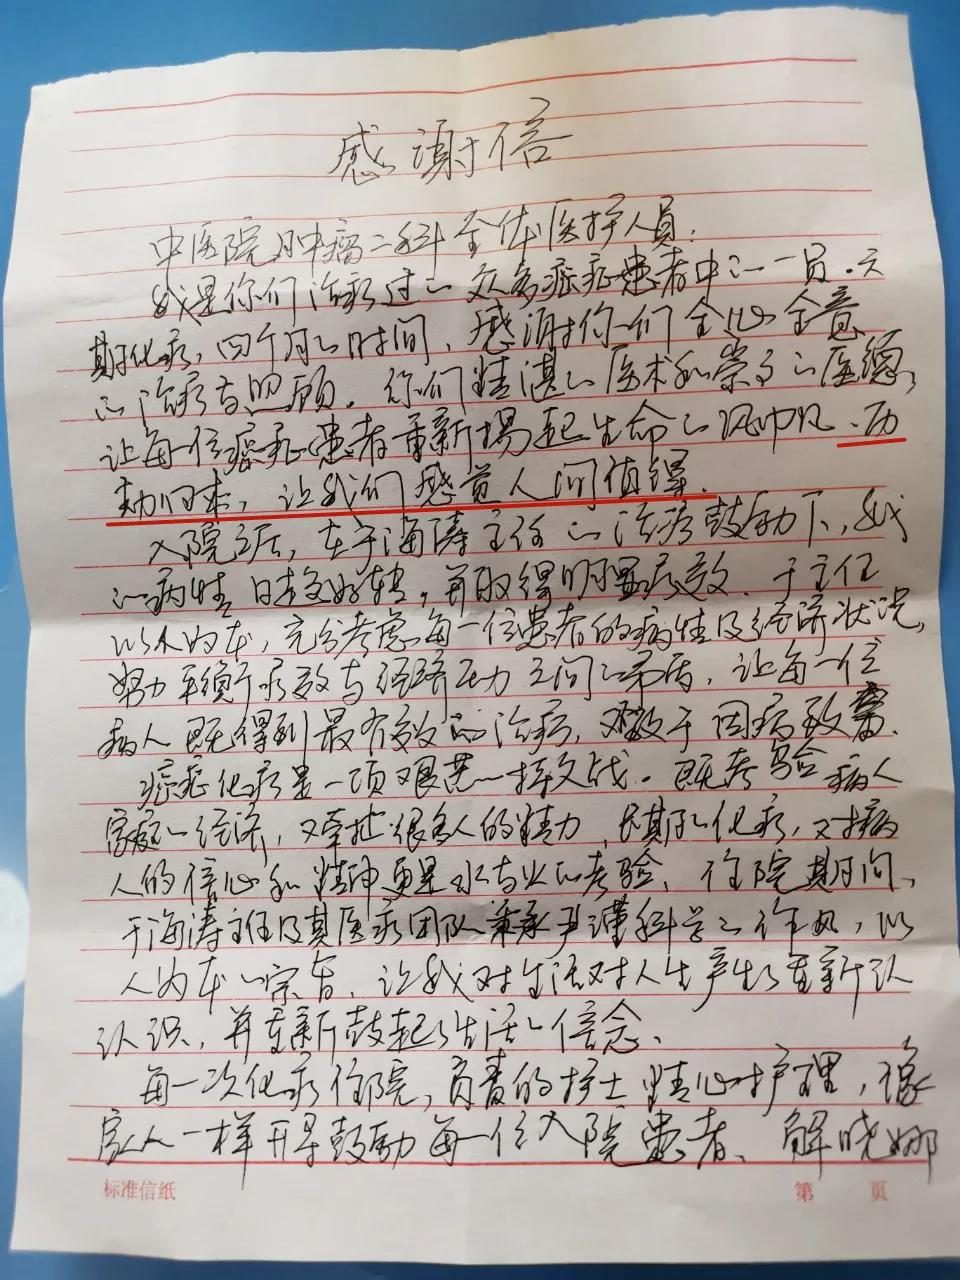 感谢信
中医院肿瘤二科全体医护人员：
我是你们治疗过的众多癌症患者中的一员。六
期化疗，四个月的时间，感谢你们全心全意
的治疗与照顾。你们精湛的医术和崇高的医德，
让每一位癌症患者重新扬起生命的风帆，历
劫归来，让我们感觉人间值得。
入院之后，在于海涛主任的治疗鼓励下，我
的病情日趋好转，并取得明显疗效。于主任
以人为本，充分考虑每一位患者的病情及经济状况，
努力平衡疗效与经济压力之间的矛盾，让每一位
病人既得到最有效的治疗，又不致于因病致
癌症化疗是一项艰苦的持久战。既考验病人
家庭的经济，又牵扯很多人的精力，长期的化疗，对病
人的信心和精神更是的考验，住院期间，
于海涛主任及其医疗团队秉承严谨科学的作风，以
人为本的宗旨，让我对生活对人生产生了重新认
认识，并重新鼓起了生活的信念。
每一次化疗住院，负责的护士精心护理，像
家人一样开导鼓励每一位入院患者、解晓娜
标准信纸
第 页